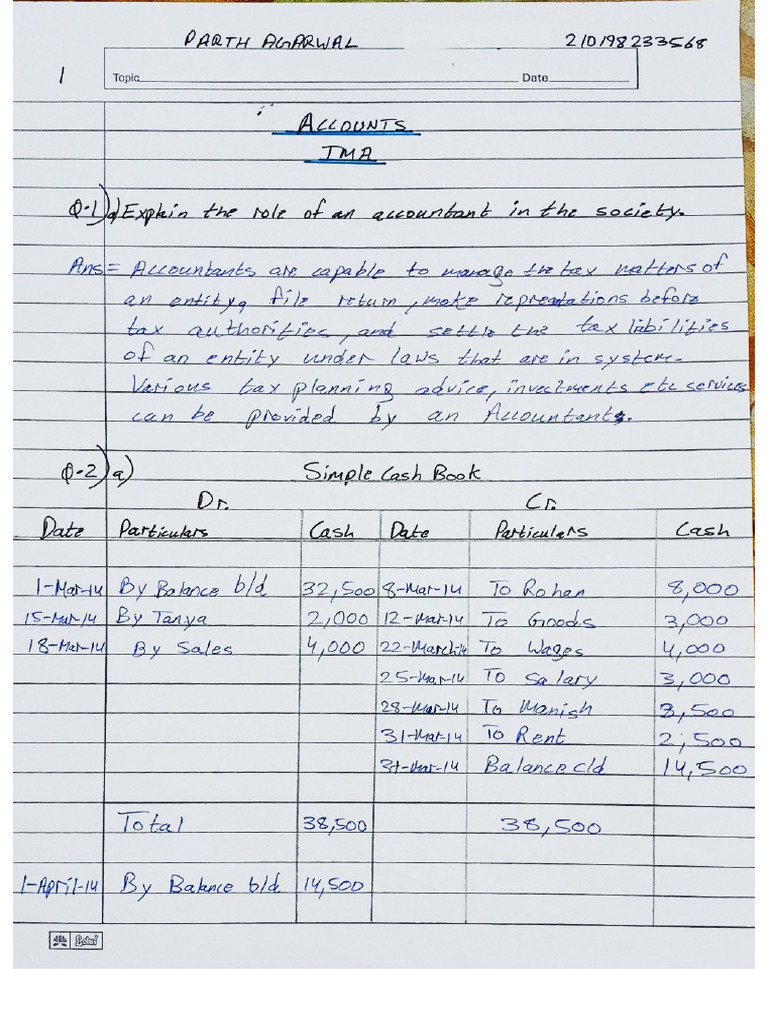 PARTH AGARWAL 210198233568
1 Topic Date
ACCOUNTS
TMA
Q-1) a) Explain the role of an accountant in the society.
Ans = Accountants are capable to manage the tax matters of
an entity, file return, make represtations before
tax authorities, and settle the tax liabilities
of an entity under laws that are in system.
Various tax planning advice, investments etc services
can be provided by an Accountants.
Q-2) a) Simple Cash Book
Dr. Cr.
Date Particulars Cash Date Particulars Cash
1-Mar-14 By Balance b/d 32,500 8-Mar-14 To Rohan 8,000
15-Mar-14 By Tanya 2,000 12-Mar-14 To Goods 3,000
18-Mar-14 By Sales 4,000 22-March-14 To Wages 4,000
25-Mar-14 To Salary 3,000
28-Mar-14 To Manish 3,500
31-Mar-14 To Rent 2,500
31-Mar-14 Balance c/d 14,500
Total 38,500 38,500
1-April-14 By Balance b/d 14,500